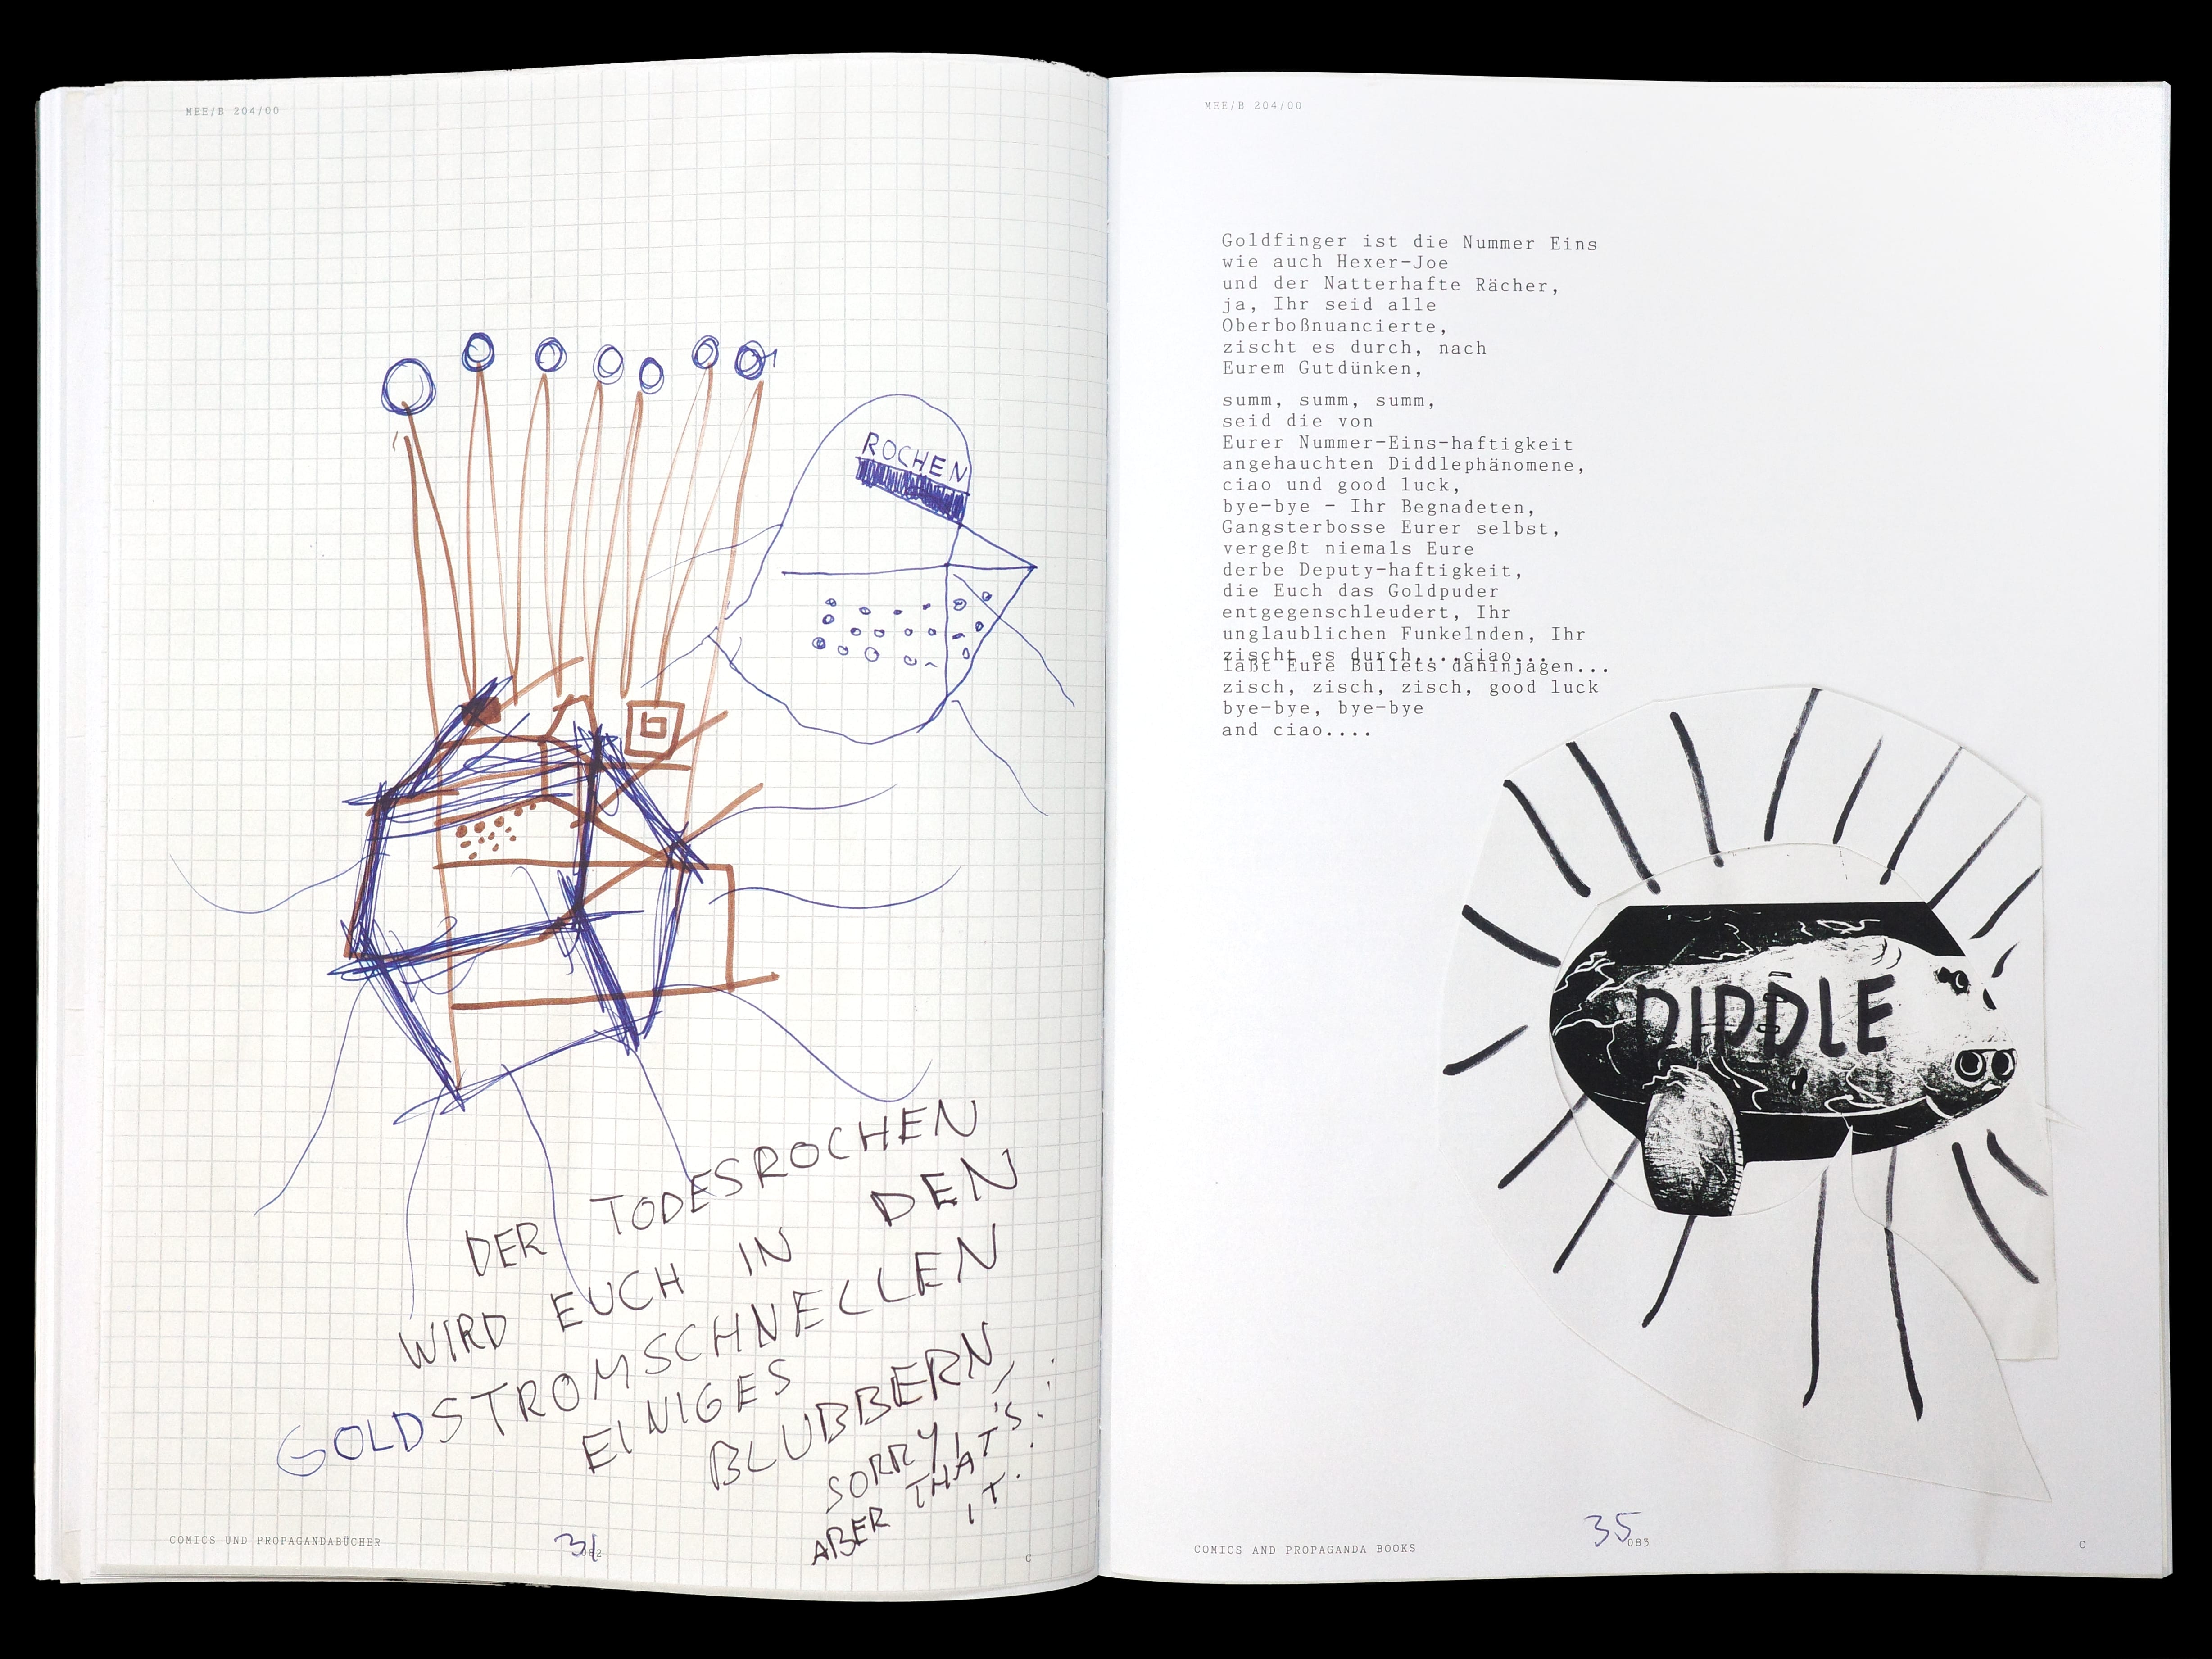 MEE/B 204/00
ROCHEN
DER TODESROCHEN
WIRD EUCH IN DEN
GOLDSTROMSCHNELLEN
EINIGES
BLUBBERN,
SORRY,
ABER THAT'S
IT.
COMICS UND PROPAGANDABÜCHER
31
082
C
MEE/B 204/00
Goldfinger ist die Nummer Eins
wie auch Hexer-Joe
und der Natterhafte Rächer,
ja, Ihr seid alle
Oberboßnuancierte,
zischt es durch, nach
Eurem Gutdünken,
summ, summ, summ,
seid die von
Eurer Nummer-Eins-haftigkeit
angehauchten Diddlephänomene,
ciao und good luck,
bye-bye - Ihr Begnadeten,
Gangsterbosse Eurer selbst,
vergeßt niemals Eure
derbe Deputy-haftigkeit,
die Euch das Goldpuder
entgegenschleudert, Ihr
unglaublichen Funkelnden, Ihr
zischt es durch....ciao...
laßt Eure Bullets dahinjagen...
zisch, zisch, zisch, good luck
bye-bye, bye-bye
and ciao....
DIDDLE
COMICS AND PROPAGANDA BOOKS
35
083
C